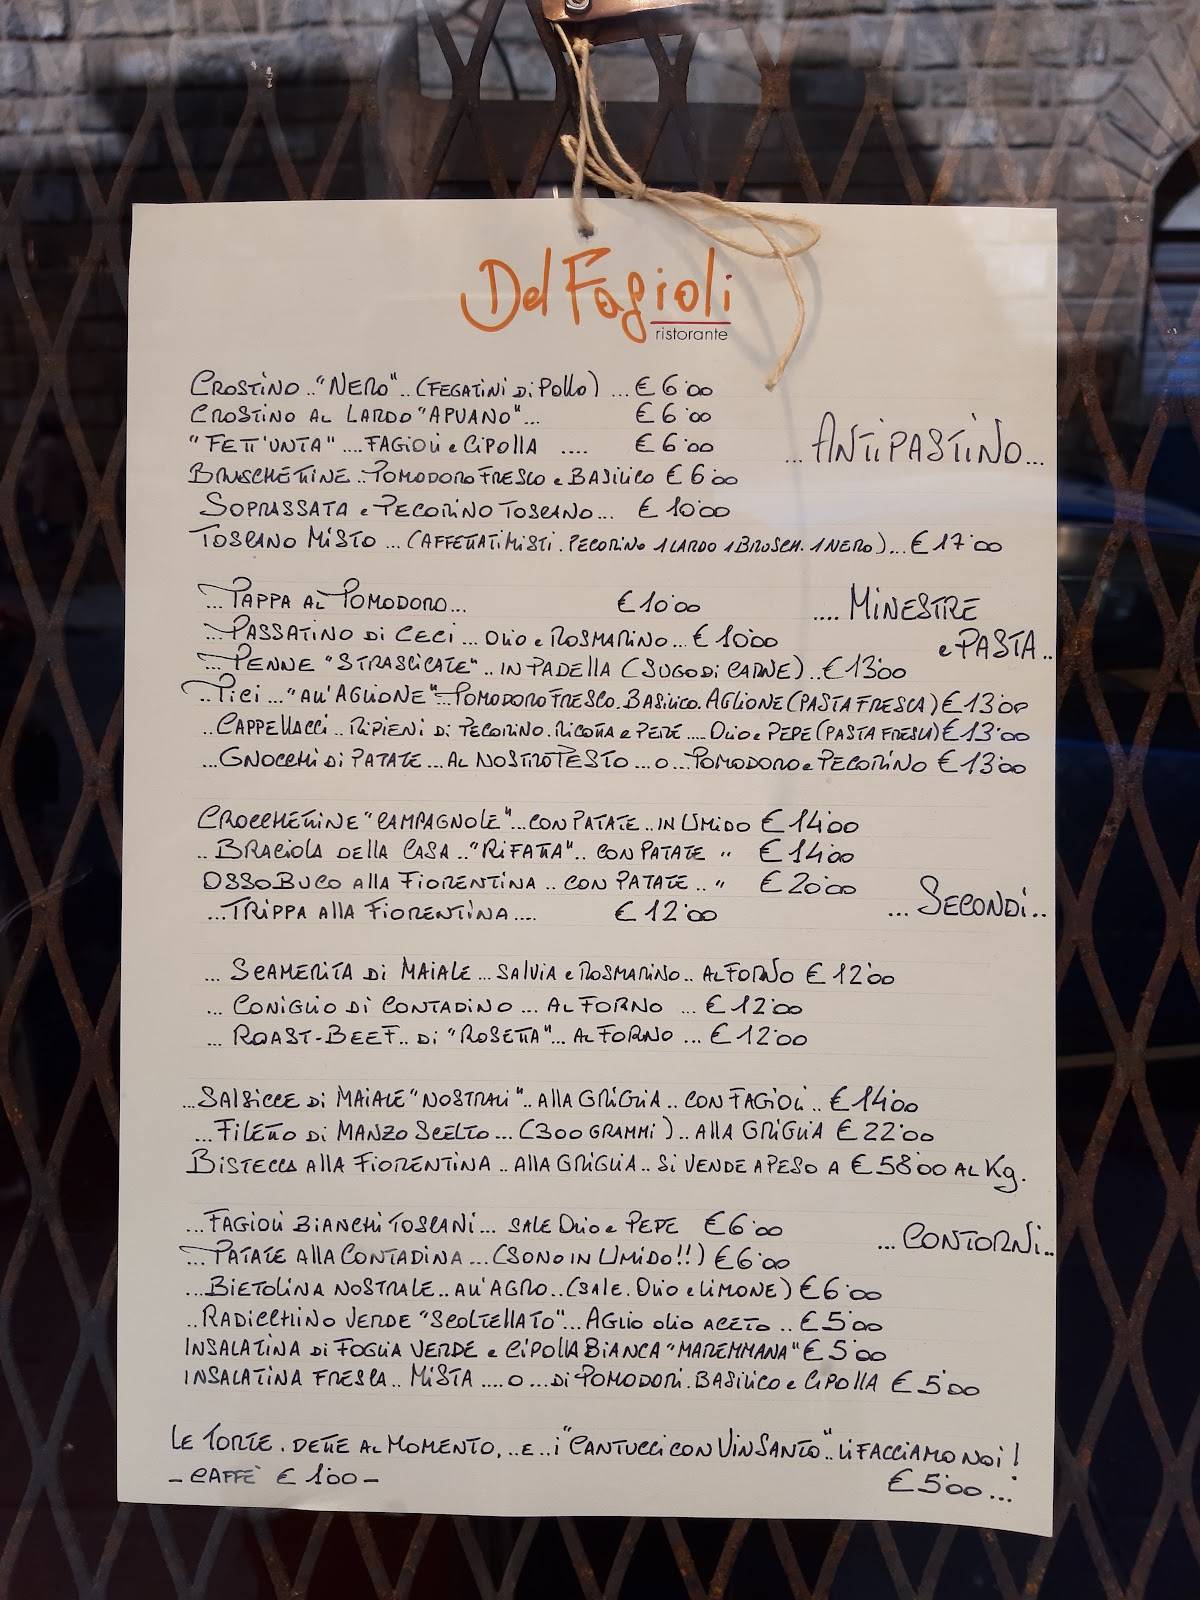 Del Fagioli
ristorante
CROSTINO.."NERO"..(FEGATINI Di POLLO) ...€ 6'00
CROSTINO AL LARDO "APUANO"... € 6'00
"FETT'UNTA"....FAGIOLI e CIPOLLA .... € 6'00
...ANTIPASTINO...
BRUSCHETTINE..POMODORO FRESCO e BASILICO € 6'00
SOPRASSATA e PECORINO TOSCANO... € 10'00
TOSCANO MISTO ... (AFFETTATI MISTI. PECORINO 1 LARDO 1 BRUSCH. 1 NERO)...€ 17'00
...PAPPA AL POMODORO... € 10'00
.... MINESTRE
e PASTA..
...PASSATINO DI CECI ... OLIO e ROSMARINO...€ 10'00
...PENNE "STRASCICATE"..IN PADELLA (SUGO DI CARNE)..€ 13'00
..PICI ..."ALL'AGLIONE"..POMODORO FRESCO.BASILICO.AGLIONE (PASTA FRESCA) € 13'00
..CAPPELLACCI..RIPIENI DI PECORINO.RICOTTA e PERE ....OLIO e PEPE (PASTA FRESCA) € 13'00
...GNOCCHI DI PATATE ...AL NOSTRO PESTO ...O...POMODORO e PECORINO € 13'00
CROCCHETTINE "CAMPAGNOLE"...CON PATATE..IN UMIDO € 14'00
..BRACIOLA DELLA CASA.."RIFATTA"..CON PATATE " € 14'00
OSSOBUCO ALLA FIORENTINA..CON PATATE.. " € 20'00
...TRIPPA ALLA FIORENTINA.... € 12'00
...SECONDI..
...SCAMERITA DI MAIALE ...SALVIA e ROSMARINO..AL FORNO € 12'00
...CONIGLIO DI CONTADINO ...AL FORNO ...€ 12'00
...ROAST-BEEF..DI "ROSETTA"...AL FORNO ...€ 12'00
...SALSICCE DI MAIALE "NOSTRALI"..ALLA GRIGLIA..CON FAGIOLI..€ 14'00
...FILETTO DI MANZO SCELTO ...(300 GRAMMI)..ALLA GRIGLIA € 22'00
BISTECCA ALLA FIORENTINA..ALLA GRIGLIA..SI VENDE A PESO A € 58'00 AL Kg.
...FAGIOLI BIANCHI TOSCANI...SALE OLIO e PEPE € 6'00
...CONTORNI..
...PATATE ALLA CONTADINA ...(SONO IN UMIDO!!) € 6'00
...BIETOLINA NOSTRALE..ALL'AGRO..(SALE.OLIO e LIMONE) € 6'00
..RADICCHINO VERDE "SCOLTELLATO"...AGLIO OLIO ACETO..€ 5'00
INSALATINA DI FOGLIA VERDE e CIPOLLA BIANCA "MAREMMANA" € 5'00
INSALATINA FRESCA..MISTA ....O...DI POMODORI.BASILICO e CIPOLLA € 5'00
LE TORTE.DETTE AL MOMENTO,..E..i "CANTUCCI CON VINSANTO"..LI FACCIAMO NOI!
- CAFFE' € 1'00 -
€ 5'00...